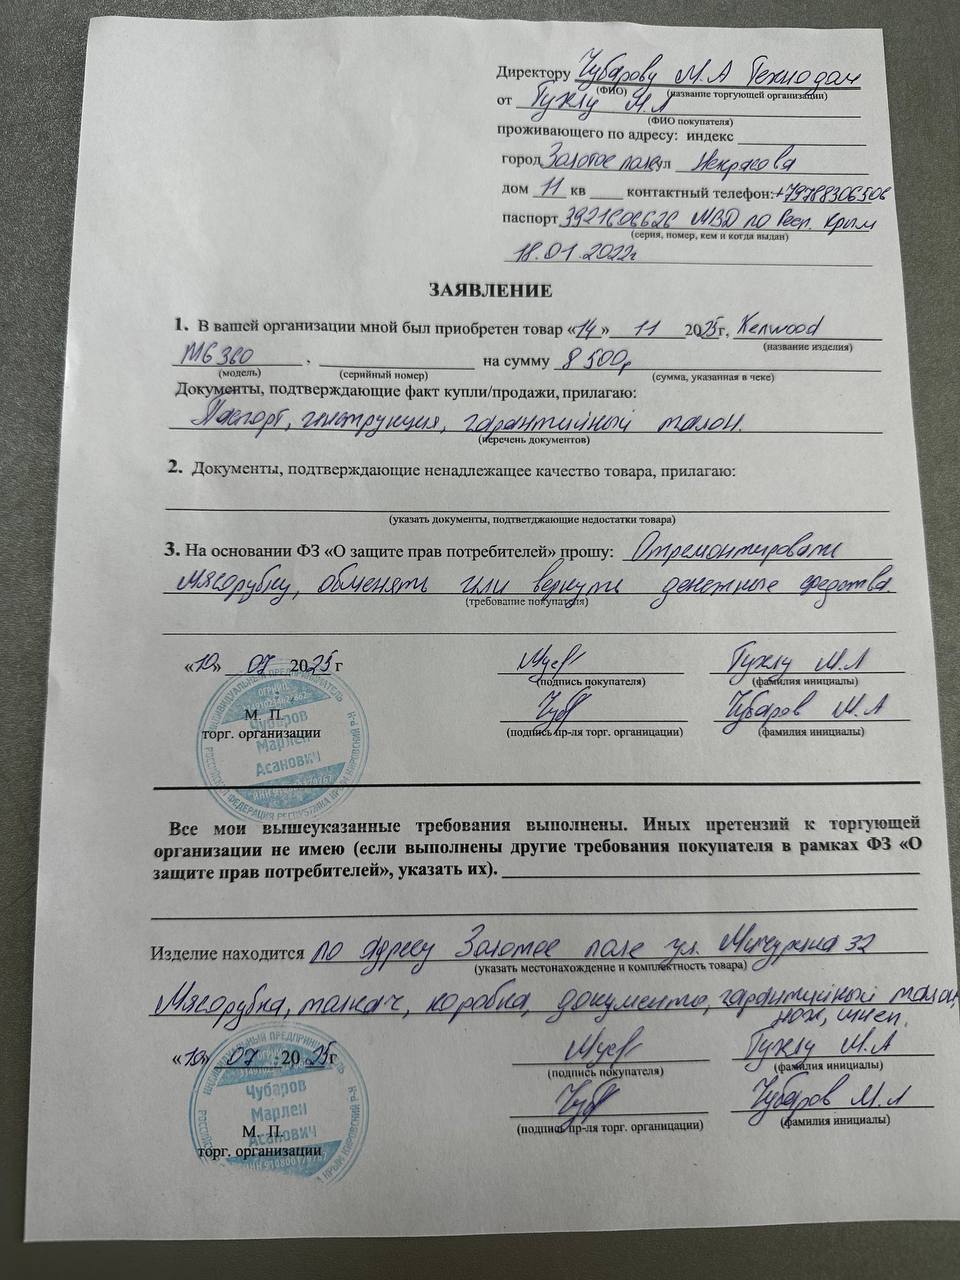 Директору Чубарову М.А Технодом
(ФИО) (название торгующей организации)
от Гухлу М.Л
(ФИО покупателя)
проживающего по адресу: индекс
город Золотое поле ул Некрасова
дом 11 кв контактный телефон: +79788306506
паспорт 3921606626 МВД по Респ. Крым
(серия, номер, кем и когда выдан)
18.01.2022г
ЗАЯВЛЕНИЕ
1. В вашей организации мной был приобретен товар «14» 11 2025г, Kenwood
(название изделия)
MG360 , на сумму 8 500р
(модель) (серийный номер) (сумма, указанная в чеке)
Документы, подтверждающие факт купли/продажи, прилагаю:
Паспорт, инструкция, гарантийный талон.
(перечень документов)
2. Документы, подтверждающие ненадлежащее качество товара, прилагаю:
(указать документы, подтветджающие недостатки товара)
3. На основании ФЗ «О защите прав потребителей» прошу: Отремонтировать
мясорубку, обменять или вернуть денежные средства.
(требование покупателя)
«10» 07 2025г Гухлу М.Л
(подпись покупателя) (фамилия инициалы)
М. П. Чубаров М.А
торг. организации (подпись пр-ля торг. организации) (фамилия инициалы)
ИНДИВИДУАЛЬНЫЙ ПРЕДПРИНИМАТЕЛЬ
Чубаров
Марлен
Асанович
РОССИЙСКАЯ ФЕДЕРАЦИЯ РЕСПУБЛИКА КРЫМ КИРОВСКИЙ Р-Н
Все мои вышеуказанные требования выполнены. Иных претензий к торгующей
организации не имею (если выполнены другие требования покупателя в рамках ФЗ «О
защите прав потребителей», указать их).
Изделие находится по адресу Золотое поле ул. Мичурина 32
(указать местонахождение и комплектность товара)
Мясорубка, толкач, коробка, документы, гарантийный талон,
нож, шнек.
«10» 07 2025г Гухлу М.Л
(подпись покупателя) (фамилия инициалы)
Чубаров М.А
М. П.
торг. организации (подпись пр-ля торг. организации) (фамилия инициалы)
Чубаров
Марлен
Асанович